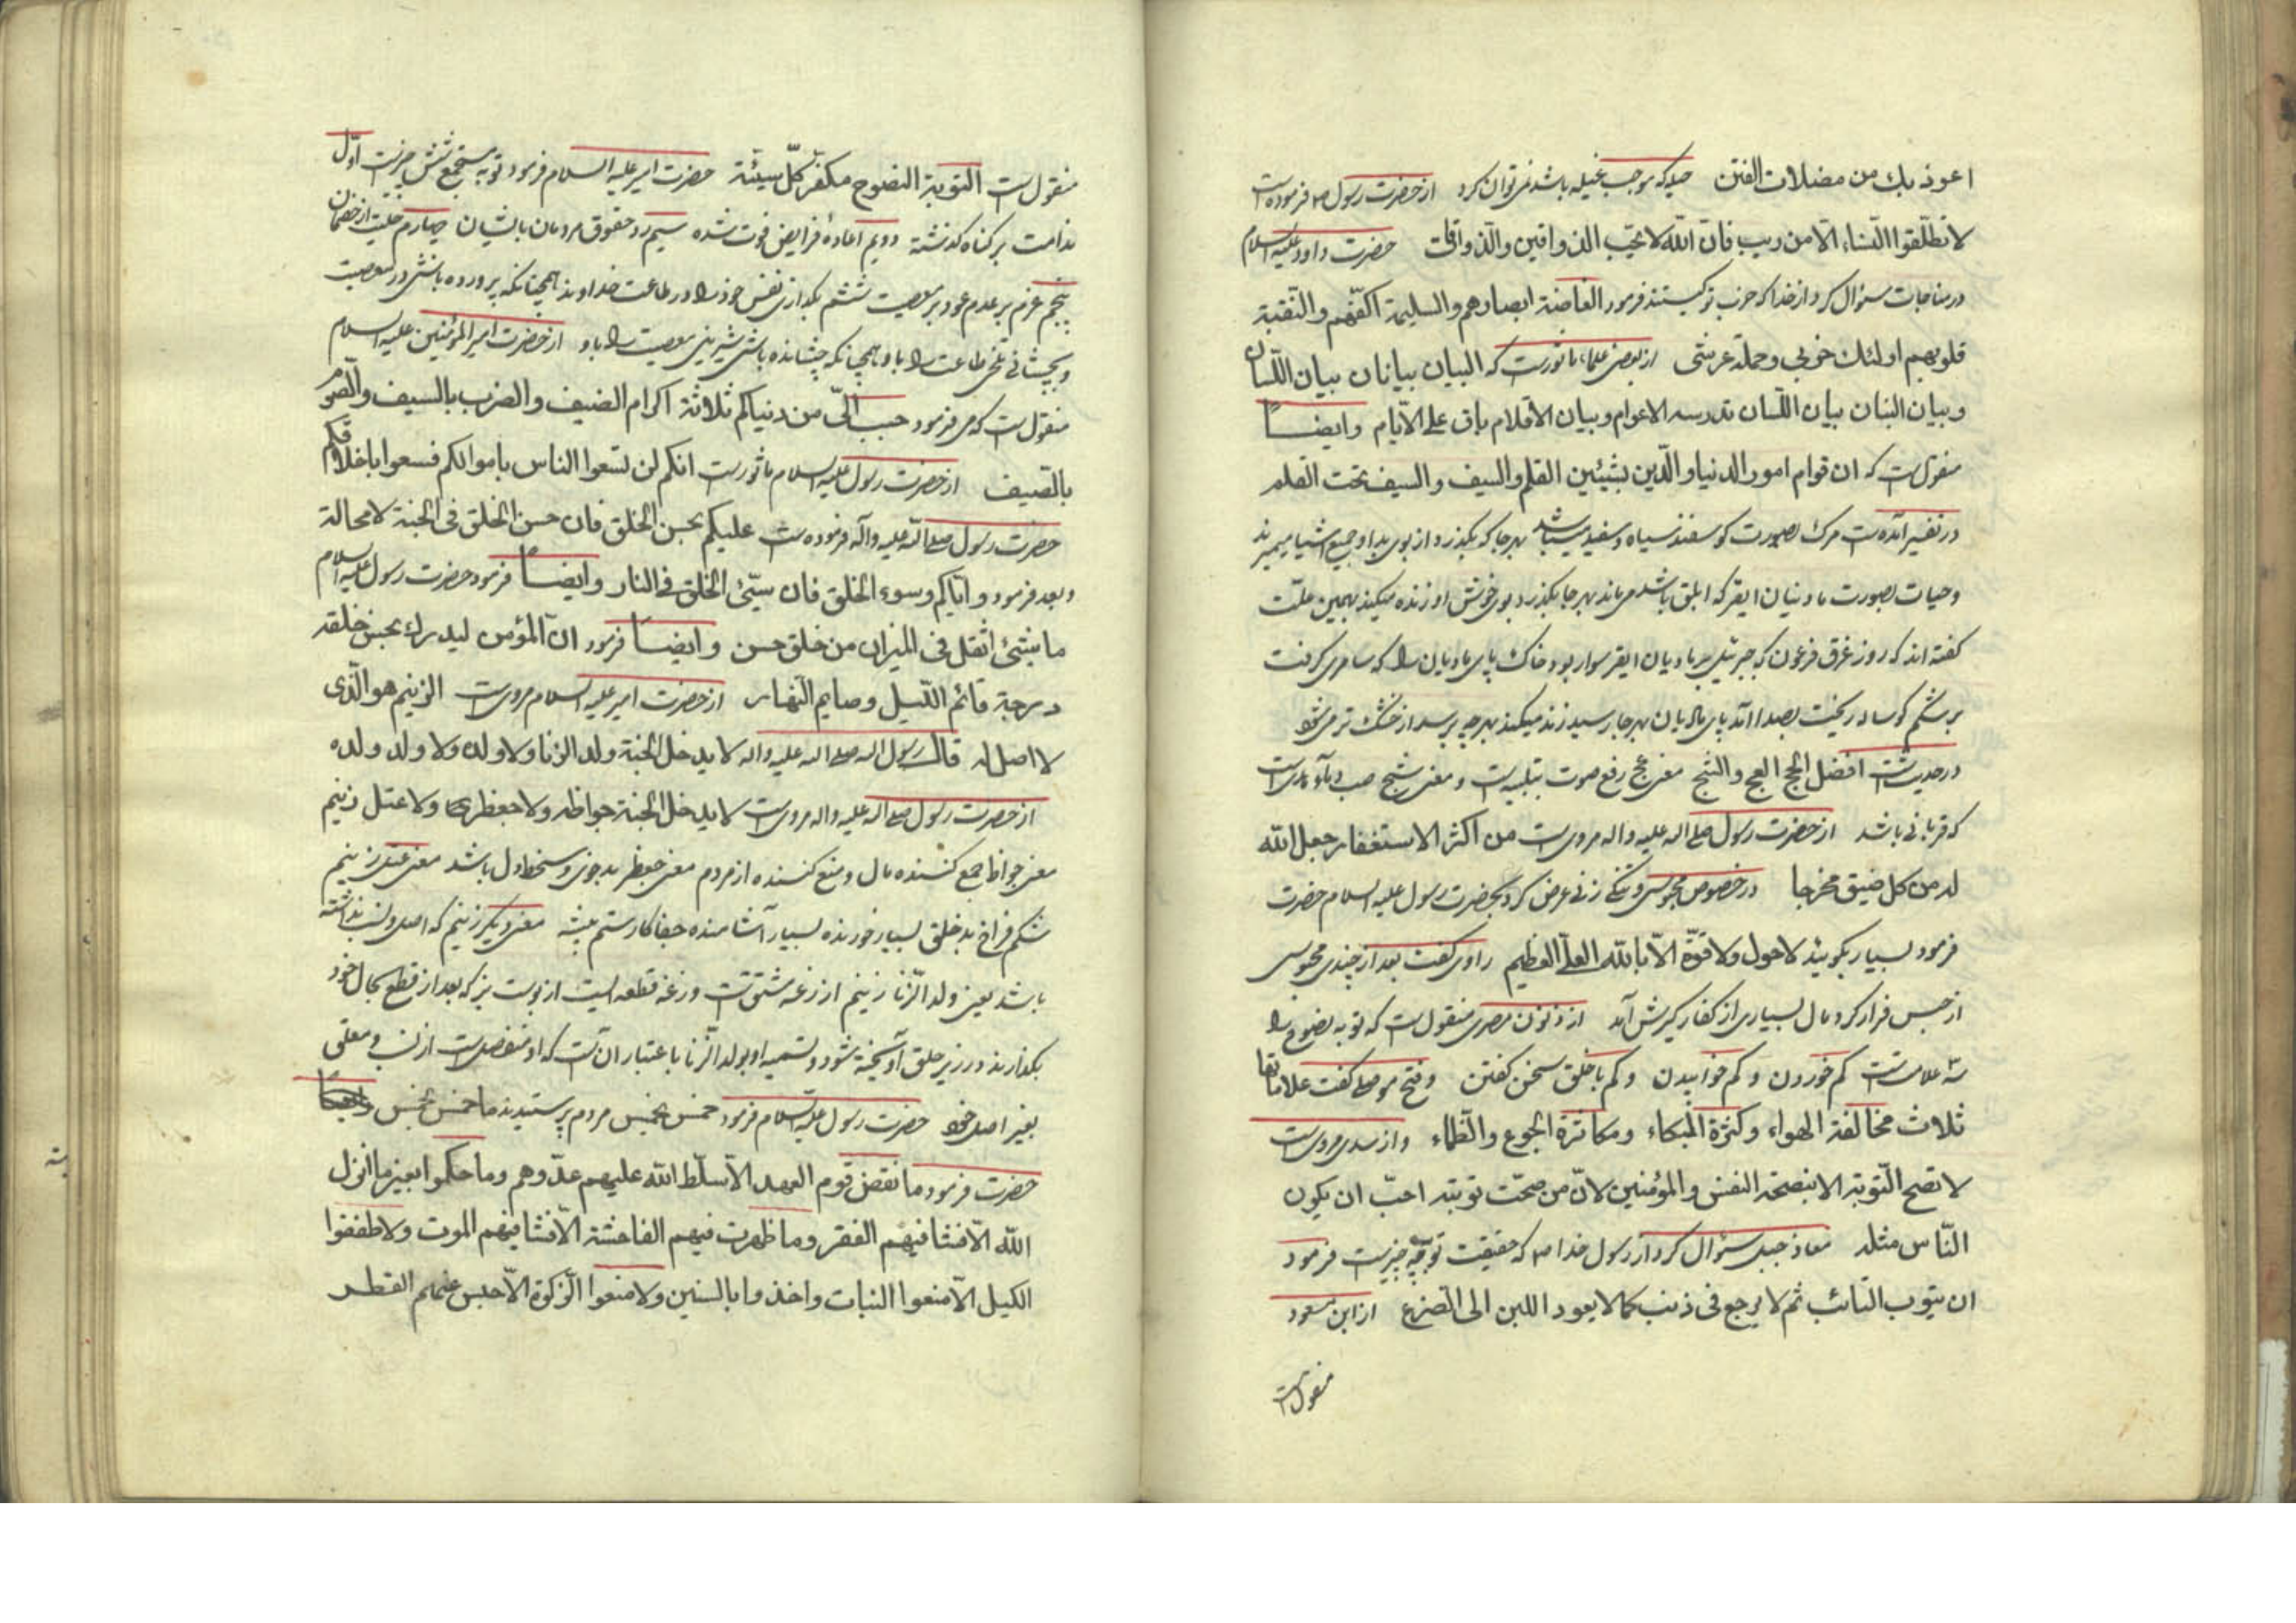 اعوذ بك من مضلات الفتن حیله که موجب غیله باشد نمی‌توان کرد از حضرت رسول ص فرموده است
لا تطلّقوا النّساء الّا من ریب فانّ اللّه لا یحبّ الذواقین والذّواقات حضرت داود علیه السلام
در مناجات سؤال کرد از خدا که حزب تو کیستند فرمود الغاضة ابصارهم والسلیمة اکفّهم والنّقیة
قلوبهم اولئك حزبی وحملة عرشی از بعضی علما ماثورست که البیان بیانان بیان اللّسان
وبیان البنان بیان اللّسان تدرسه الاعوام وبیان الاقلام باق علی الایّام وایضاً
منقول است که ان قوام امور الدنیا والدّین بشیئین القلم والسیف والسیف تحت القلم
در تفسیر آمده است مرگ بصورت گوسفند سیاه وسفید میباشد بهر جا که بگذرد از بوی بد او جمیع اشیا میمیرند
وحیات بصورت مادیان ابقر که ابلق باشد می‌ماند بهر جا بگذرد بوی خوش او زنده میکند بهمین علّت
گفته اند که روز غرق فرعون که جبرئیل بر مادیان ابقر سوار بود خاك پای مادیان را که سامری گرفت
بر شکم گوساله ریخت بصدا آمد پای مادیان بهر جا رسید زنده میکند بهر چه برسد از خشك تر می‌شود
در حدیث است افضل الحج العج والثج معنی عج رفع صوت بتلبیه است و معنی ثج صب دماء است
که قربانی باشد از حضرت رسول صلی اله علیه واله مرویست من اکثر الاستغفار جعل اللّه
له من کل ضیق مخرجا در خصوص محبوسی و تنگی زنی عرض کرد بحضرت رسول علیه السلام حضرت
فرمود بسیار بگویید لا حول ولا قوّة الّا باللّه العلیّ العظیم راوی گفت بعد از چندی محبوس
از حبس فرار کرد و مال بسیاری از کفار گیرش آمد از ذو النون مصری منقول است که توبه نصوح را
سه علامتست کم خوردن و کم خوابیدن و کم با خلق سخن گفتن وفتح موصلی گفت علاماتها
ثلاث مخالفة الهواء وکثرة البکاء ومکابرة الجوع والظّماء و از سدی مرویست
لا تصح التّوبة الا بنصحة النفس والمؤمنین لانّ من صحّت توبته احبّ ان یکون
النّاس مثله معاذ جبل سؤال کرد از رسول خدا ص که حقیقت توبه چیست فرمود
ان یتوب التائب ثم لا یرجع فی ذنب کما لا یعود اللبن الی الضرع از ابن مسعود
منقول است
منقول است التوبة النصوح مکفّر کلّ سیّئة حضرت امیر علیه السلام فرمود توبه مستجمع شش چیزست اوّل
ندامت بر گناه گذشته دویم اعادهٔ فرایض فوت شده سیم رد حقوق مردمان بایشان چهارم حلّیت از خصمان
پنجم عزم بر عدم عود بر معصیت ششم بگدازی نفس خود را در طاعت خداوند همچنانکه پرورده باشی در معصیت
وبچشانی تلخی طاعت را باو همچنانکه چشانده باشی شیرینی معصیت را باو از حضرت امیر المؤمنین علیه السلام
منقول است که می فرمود حبب الیّ من دنیاکم ثلاثة اکرام الضیف والضرب بالسیف والصّوم
بالصّیف از حضرت رسول علیه السلام ماثورست انکم لن تسعوا الناس باموالکم فسعوا باخلاقکم
حضرت رسول صلی اللّه علیه وآله فرموده است علیکم بحسن الخلق فان حسن الخلق فی الجنة لا محالة
وبعد فرمود وایّاکم وسوء الخلق فان سیّئ الخلق فی النار وایضاً فرمود حضرت رسول علیه السلام
ما شیئ اثقل فی المیزان من خلق حسن وایضاً فرمود انّ المؤمن لیدرك بحسن خلقه
درجة قائم اللّیل وصایم النّهار از حضرت امیر علیه السلام مرویست الزنیم هو الّذی
لا اصل له قال رسول اله صلی اله علیه واله لا یدخل الجنة ولد الزنا ولا ولده ولا ولد ولده
از حضرت رسول صلی اله علیه واله مرویست لا یدخل الجنة جواظ ولا جعظری ولا عتل زنیم
معنی جواظ جمع کننده مال ومنع کننده از مردم معنی جعظر بدخوی وسخط دل باشد معنی عتل زنیم
شکم فراخ بد خلق بسیار خورنده بسیار آشامنده جفاکار ستم پیشه معنی دیگر زنیم که اصل ونسب نداشته
باشد یعنی ولد الزّنا زنیم از زنمه مشتق است وزنمه قطعه ایست از پوست بز که بعد از قطع بحال خود
بگذارند در زیر حلق آویخته شود وتسمیه او بولد الزّنا باعتبار آنست که او منفصل است از نسب و معلق
بغیر اصل خود حضرت رسول علیه السلام فرمود خمس بخمس مردم پرسیدند ما خمس بخمس
حضرت فرمود ما نقض قوم العهد الّا سلّط اللّه علیهم عدّوهم وما حکموا بغیر ما انزل
اللّه الّا فشا فیهم الفقر وما ظهرت فیهم الفاحشة الّا فشا فیهم الموت ولا طففوا
الکیل الّا منعوا النبات واخذوا بالسنین ولا منعوا الزّکوة الّا حبس عنهم القطر